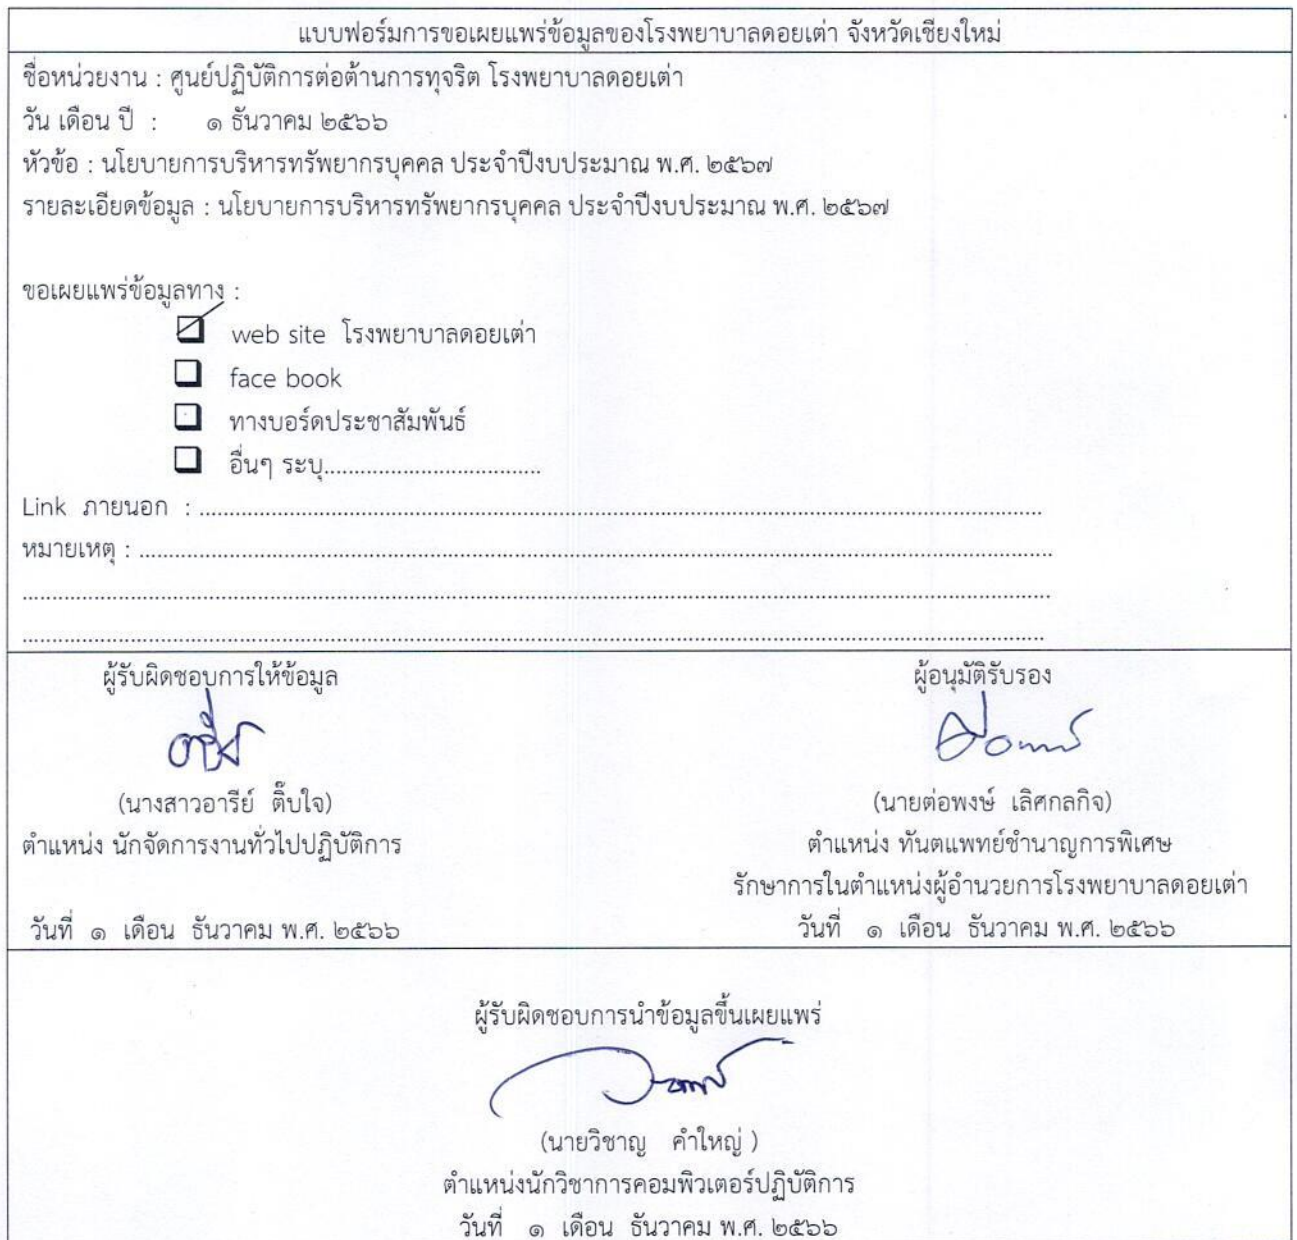 แบบฟอร์มการขอเผยแพร่ข้อมูลของโรงพยาบาลดอยเต่า จังหวัดเชียงใหม่
ชื่อหน่วยงาน : ศูนย์ปฏิบัติการต่อต้านการทุจริต โรงพยาบาลดอยเต่า
วัน เดือน ปี : ๑ ธันวาคม ๒๕๖๖
หัวข้อ : นโยบายการบริหารทรัพยากรบุคคล ประจำปีงบประมาณ พ.ศ. ๒๕๖๗
รายละเอียดข้อมูล : นโยบายการบริหารทรัพยากรบุคคล ประจำปีงบประมาณ พ.ศ. ๒๕๖๗
ขอเผยแพร่ข้อมูลทาง :
web site โรงพยาบาลดอยเต่า
face book
ทางบอร์ดประชาสัมพันธ์
อื่นๆ ระบุ....................................
Link ภายนอก : ............................................................................................................................................
หมายเหตุ : ........................................................................................................................................................
............................................................................................................................................................................
...........................................................................................................................................................................
ผู้รับผิดชอบการให้ข้อมูล
(นางสาวอารีย์ ติ๊บใจ)
ตำแหน่ง นักจัดการงานทั่วไปปฏิบัติการ
วันที่ ๑ เดือน ธันวาคม พ.ศ. ๒๕๖๖
ผู้อนุมัติรับรอง
(นายต่อพงษ์ เลิศกลกิจ)
ตำแหน่ง ทันตแพทย์ชำนาญการพิเศษ
รักษาการในตำแหน่งผู้อำนวยการโรงพยาบาลดอยเต่า
วันที่ ๑ เดือน ธันวาคม พ.ศ. ๒๕๖๖
ผู้รับผิดชอบการนำข้อมูลขึ้นเผยแพร่
(นายวิชาญ คำใหญ่ )
ตำแหน่งนักวิชาการคอมพิวเตอร์ปฏิบัติการ
วันที่ ๑ เดือน ธันวาคม พ.ศ. ๒๕๖๖